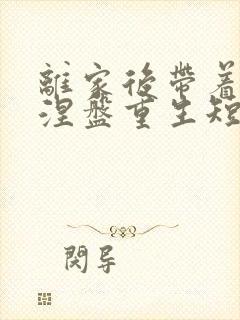 離家後帶着
涅盤重生短
閔导